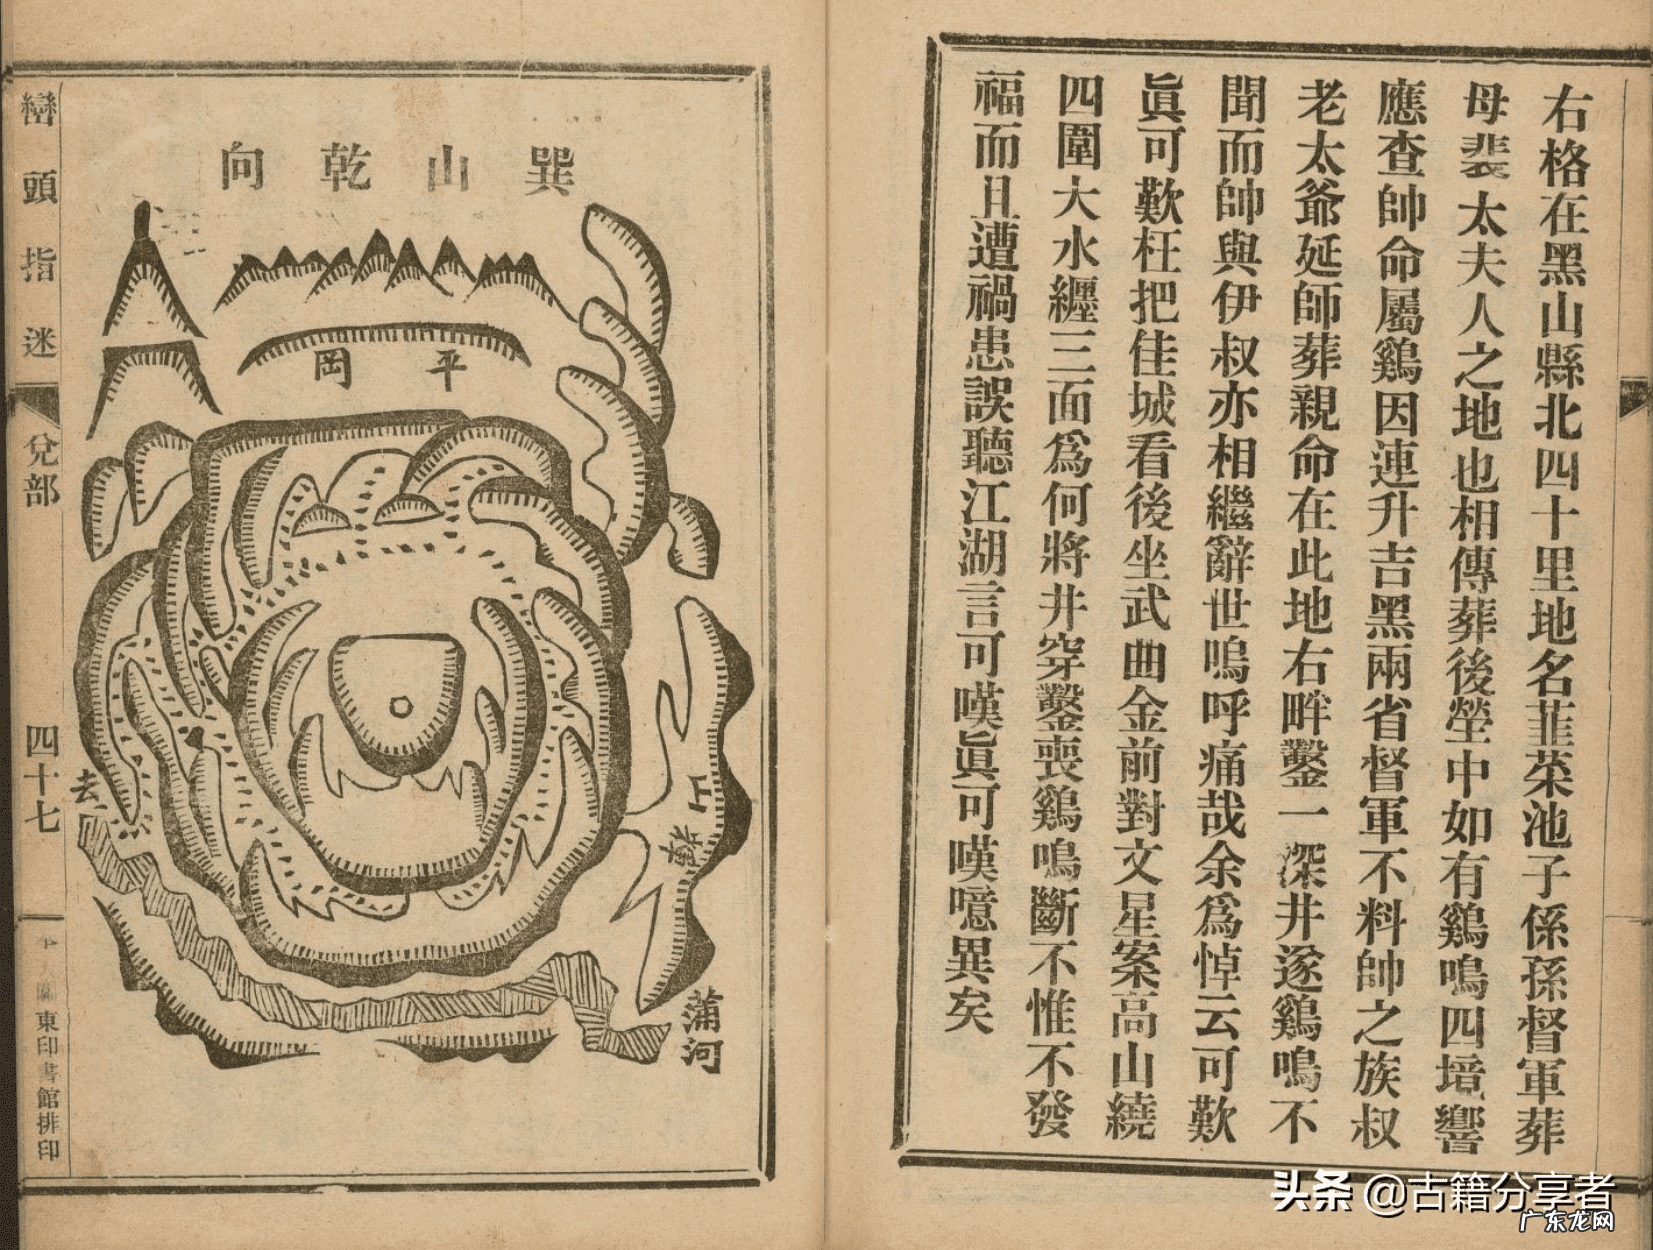 右格在黑山縣北四十里地名韮菜池子係孫督軍葬
母裴太夫人之地也相傳葬後塋中如有鷄鳴四境響
應查帥命屬鷄因連升吉黑兩省督軍不料帥之族叔
老太爺延師葬親命在此地右畔鑿一深井遂鷄鳴不
聞而帥與伊叔亦相繼辭世嗚呼痛哉余爲悼云可歎
眞可歎枉把佳城看後坐武曲金前對文星案高山繞
四圍大水纏三面爲何將井穿鑿喪鷄鳴斷不惟不發
福而且遭禍患誤聽江湖言可嘆眞可嘆噫異矣
巒頭指迷
兌部
四十七
東印書館排印
巽山乾向
平岡
去
山
蒲河
头条 @古籍分享者
广东龙网